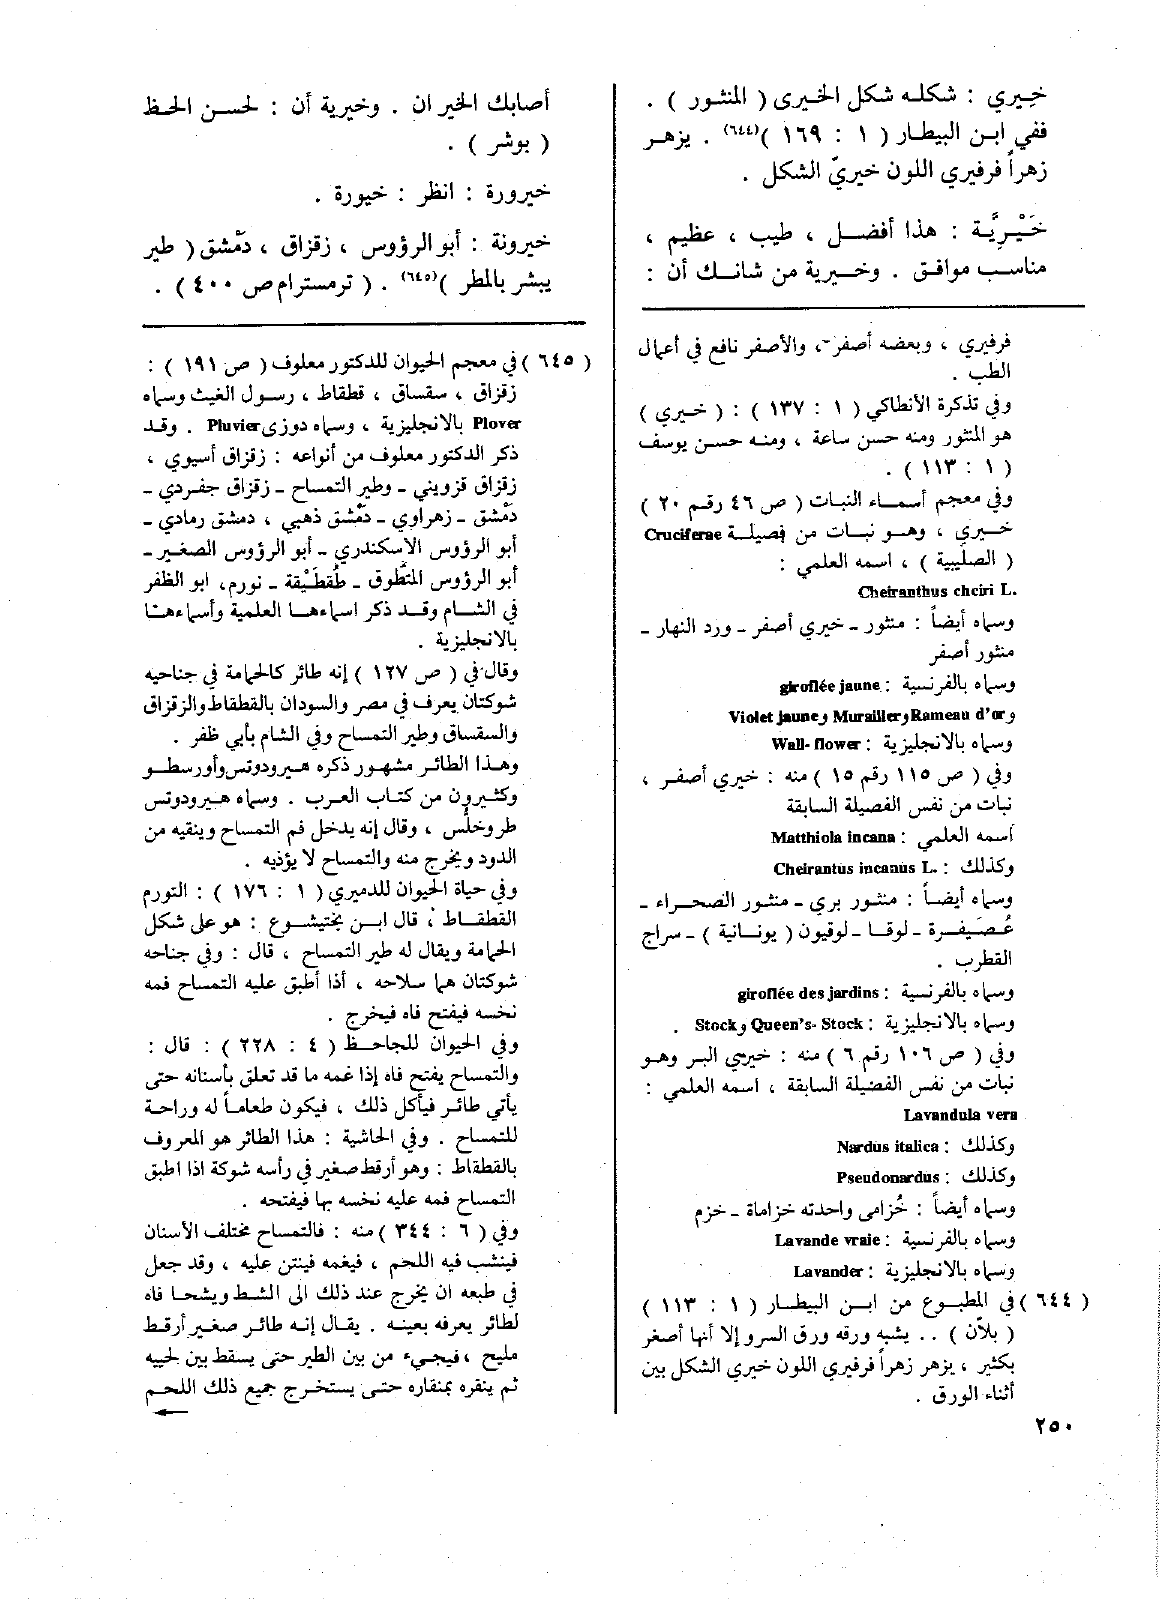 خِيري : شكله شكل الخيرى ( المنثور ) .
ففي ابن البيطار ( ١ : ١٦٩ )(٦٤٤) . يزهر
زهراً فرفيري اللون خيريّ الشكل .
خَيْرِيَّة : هذا أفضل ، طيب ، عظيم ،
مناسب موافق . وخيرية من شانك أن :
أصابك الخير ان . وخيرية أن : لحسن الحظ
( بوشر ) .
خيرورة : انظر : خيورة .
خيرونة : أبو الرؤوس ، زقزاق ، دمشق ( طير
يبشر بالمطر )(٦٤٥) . ( ترمسترام ص ٤٠٠ ) .
فرفيري ، وبعضه أصفر ، والأصفر نافع في أعمال
الطب .
وفي تذكرة الأنطاكي ( ١ : ١٣٧ ) : ( خيري )
هو المنثور ومنه حسن ساعة ، ومنه حسن يوسف
( ١ : ١١٣ ) .
وفي معجم أسماء النبات ( ص ٤٦ رقم ٢٠ )
خيري ، وهو نبات من فصيلة Cruciferae
( الصليبية ) ، اسمه العلمي :
Cheiranthus chciri L.
وسماه أيضاً : منثور - خيري أصفر - ورد النهار -
منثور أصفر
وسماه بالفرنسية : giroflée jaune
وRameau d'or وMurailler وViolet jaune
وسماه بالانجليزية : Wall- flower
وفي ( ص ١١٥ رقم ١٥ ) منه : خيري أصفر ،
نبات من نفس الفصيلة السابقة
اسمه العلمي : Matthiola incana
وكذلك : Cheirantus incanus L.
وسماه أيضاً : منثور بري - منثور الصحراء -
عُصَيفرة - لوقا - لوقيون ( يونانية ) - سراج
القطرب .
وسماه بالفرنسية : giroflée des jardins
وسماه بالانجليزية : Queen's- Stock وStock .
وفي ( ص ١٠٦ رقم ٦ ) منه : خيري البر وهو
نبات من نفس الفصيلة السابقة ، اسمه العلمي :
Lavandula vera
وكذلك : Nardus italica
وكذلك : Pseudonardus
وسماه أيضاً : خُزامى واحدته خزاماة - خزم
وسماه بالفرنسية : Lavande vraie
وسماه بالانجليزية : Lavander
( ٦٤٤ ) في المطبوع من ابن البيطار ( ١ : ١١٣ )
( بلان ) .. يشبه ورقه ورق السرو إلا أنها أصغر
بكثير ، يزهر زهراً فرفيري اللون خيري الشكل بين
أثناء الورق .
( ٦٤٥ ) في معجم الحيوان للدكتور معلوف ( ص ١٩١ ) :
زقزاق ، سقساق ، قطقاط ، رسول الغيث وسماه
Plover بالانجليزية ، وسماه دوزى Pluvier . وقد
ذكر الدكتور معلوف من أنواعه : زقزاق أسيوي ،
زقزاق قزويني - وطير التمساح - زقزاق جفردي -
دمشق - زهراوي - دمشق ذهبي ، دمشق رمادي -
أبو الرؤوس الاسكندري - أبو الرؤوس الصغير -
أبو الرؤوس المتطوق - طُقطَيْقة - نورم، ابو الظفر
في الشام وقد ذكر اسماءها العلمية وأسماءها
بالانجليزية .
وقال في ( ص ١٢٧ ) إنه طائر كالحمامة في جناحيه
شوكتان يعرف في مصر والسودان بالقطقاط والزقزاق
والسقساق وطير التمساح وفي الشام بأبي ظفر .
وهذا الطائر مشهور ذكره هيرودوتس وأورسطو
وكثيرون من كتاب العرب . وسماه هيرودوتس
طروخلُس ، وقال إنه يدخل فم التمساح وينقيه من
الدود ويخرج منه والتمساح لا يؤذيه .
وفي حياة الحيوان للدميري ( ١ : ١٧٦ ) : التورم
القطقاط ، قال ابن بختيشوع : هو على شكل
الحمامة ويقال له طير التمساح ، قال : وفي جناحه
شوكتان هما سلاحه ، أذا أطبق عليه التمساح فمه
نخسه فيفتح فاه فيخرج .
وفي الحيوان للجاحظ ( ٤ : ٢٢٨ ) : قال :
والتمساح يفتح فاه إذا غمه ما قد تعلق بأسنانه حتى
يأتي طائر فيأكل ذلك ، فيكون طعاماً له وراحة
للتمساح . وفي الحاشية : هذا الطائر هو المعروف
بالقطقاط : وهو أرقط صغير في رأسه شوكة اذا اطبق
التمساح فمه عليه نخسه بها فيفتحه .
وفي ( ٦ : ٣٤٤ ) منه : فالتمساح مختلف الأسنان
فينشب فيه اللحم ، فيغمه فينتن عليه ، وقد جعل
في طبعه ان يخرج عند ذلك الى الشط ويشحا فاه
لطائر يعرفه بعينه . يقال إنه طائر صغير أرقط
مليح ، فيجيء من بين الطير حتى يسقط بين لحييه
ثم ينقره بمنقاره حتى يستخرج جميع ذلك اللحم
٢٥٠